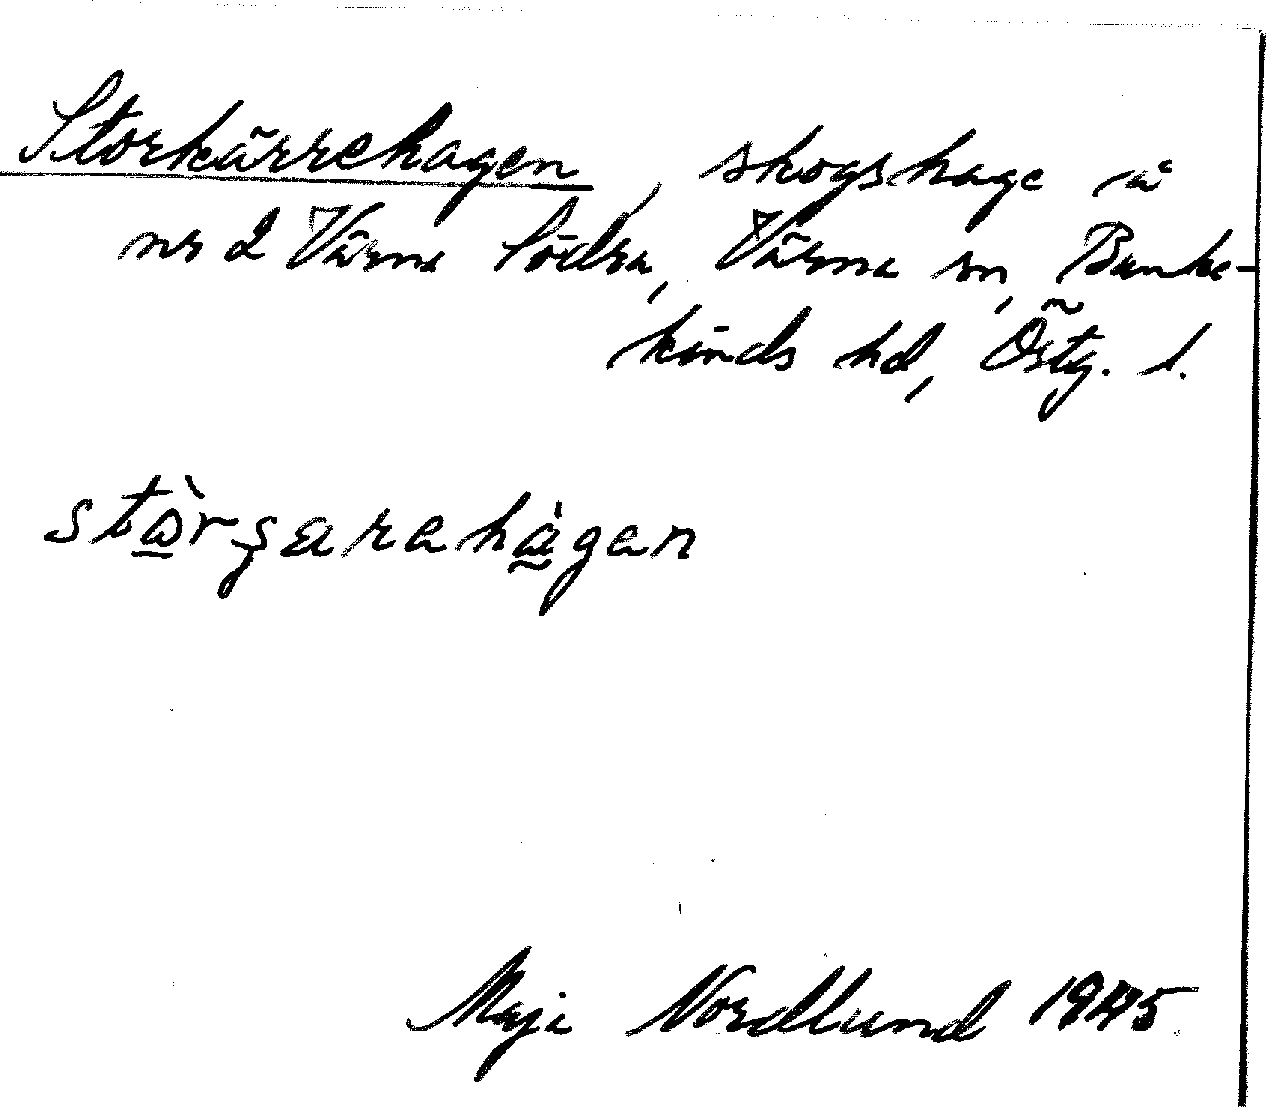 Storkärrehagen, skogshage å
nr 2 Värna Södra, Värna sn, Banke-
kinds hd, Östg. l.
Maja Nordlund 1945